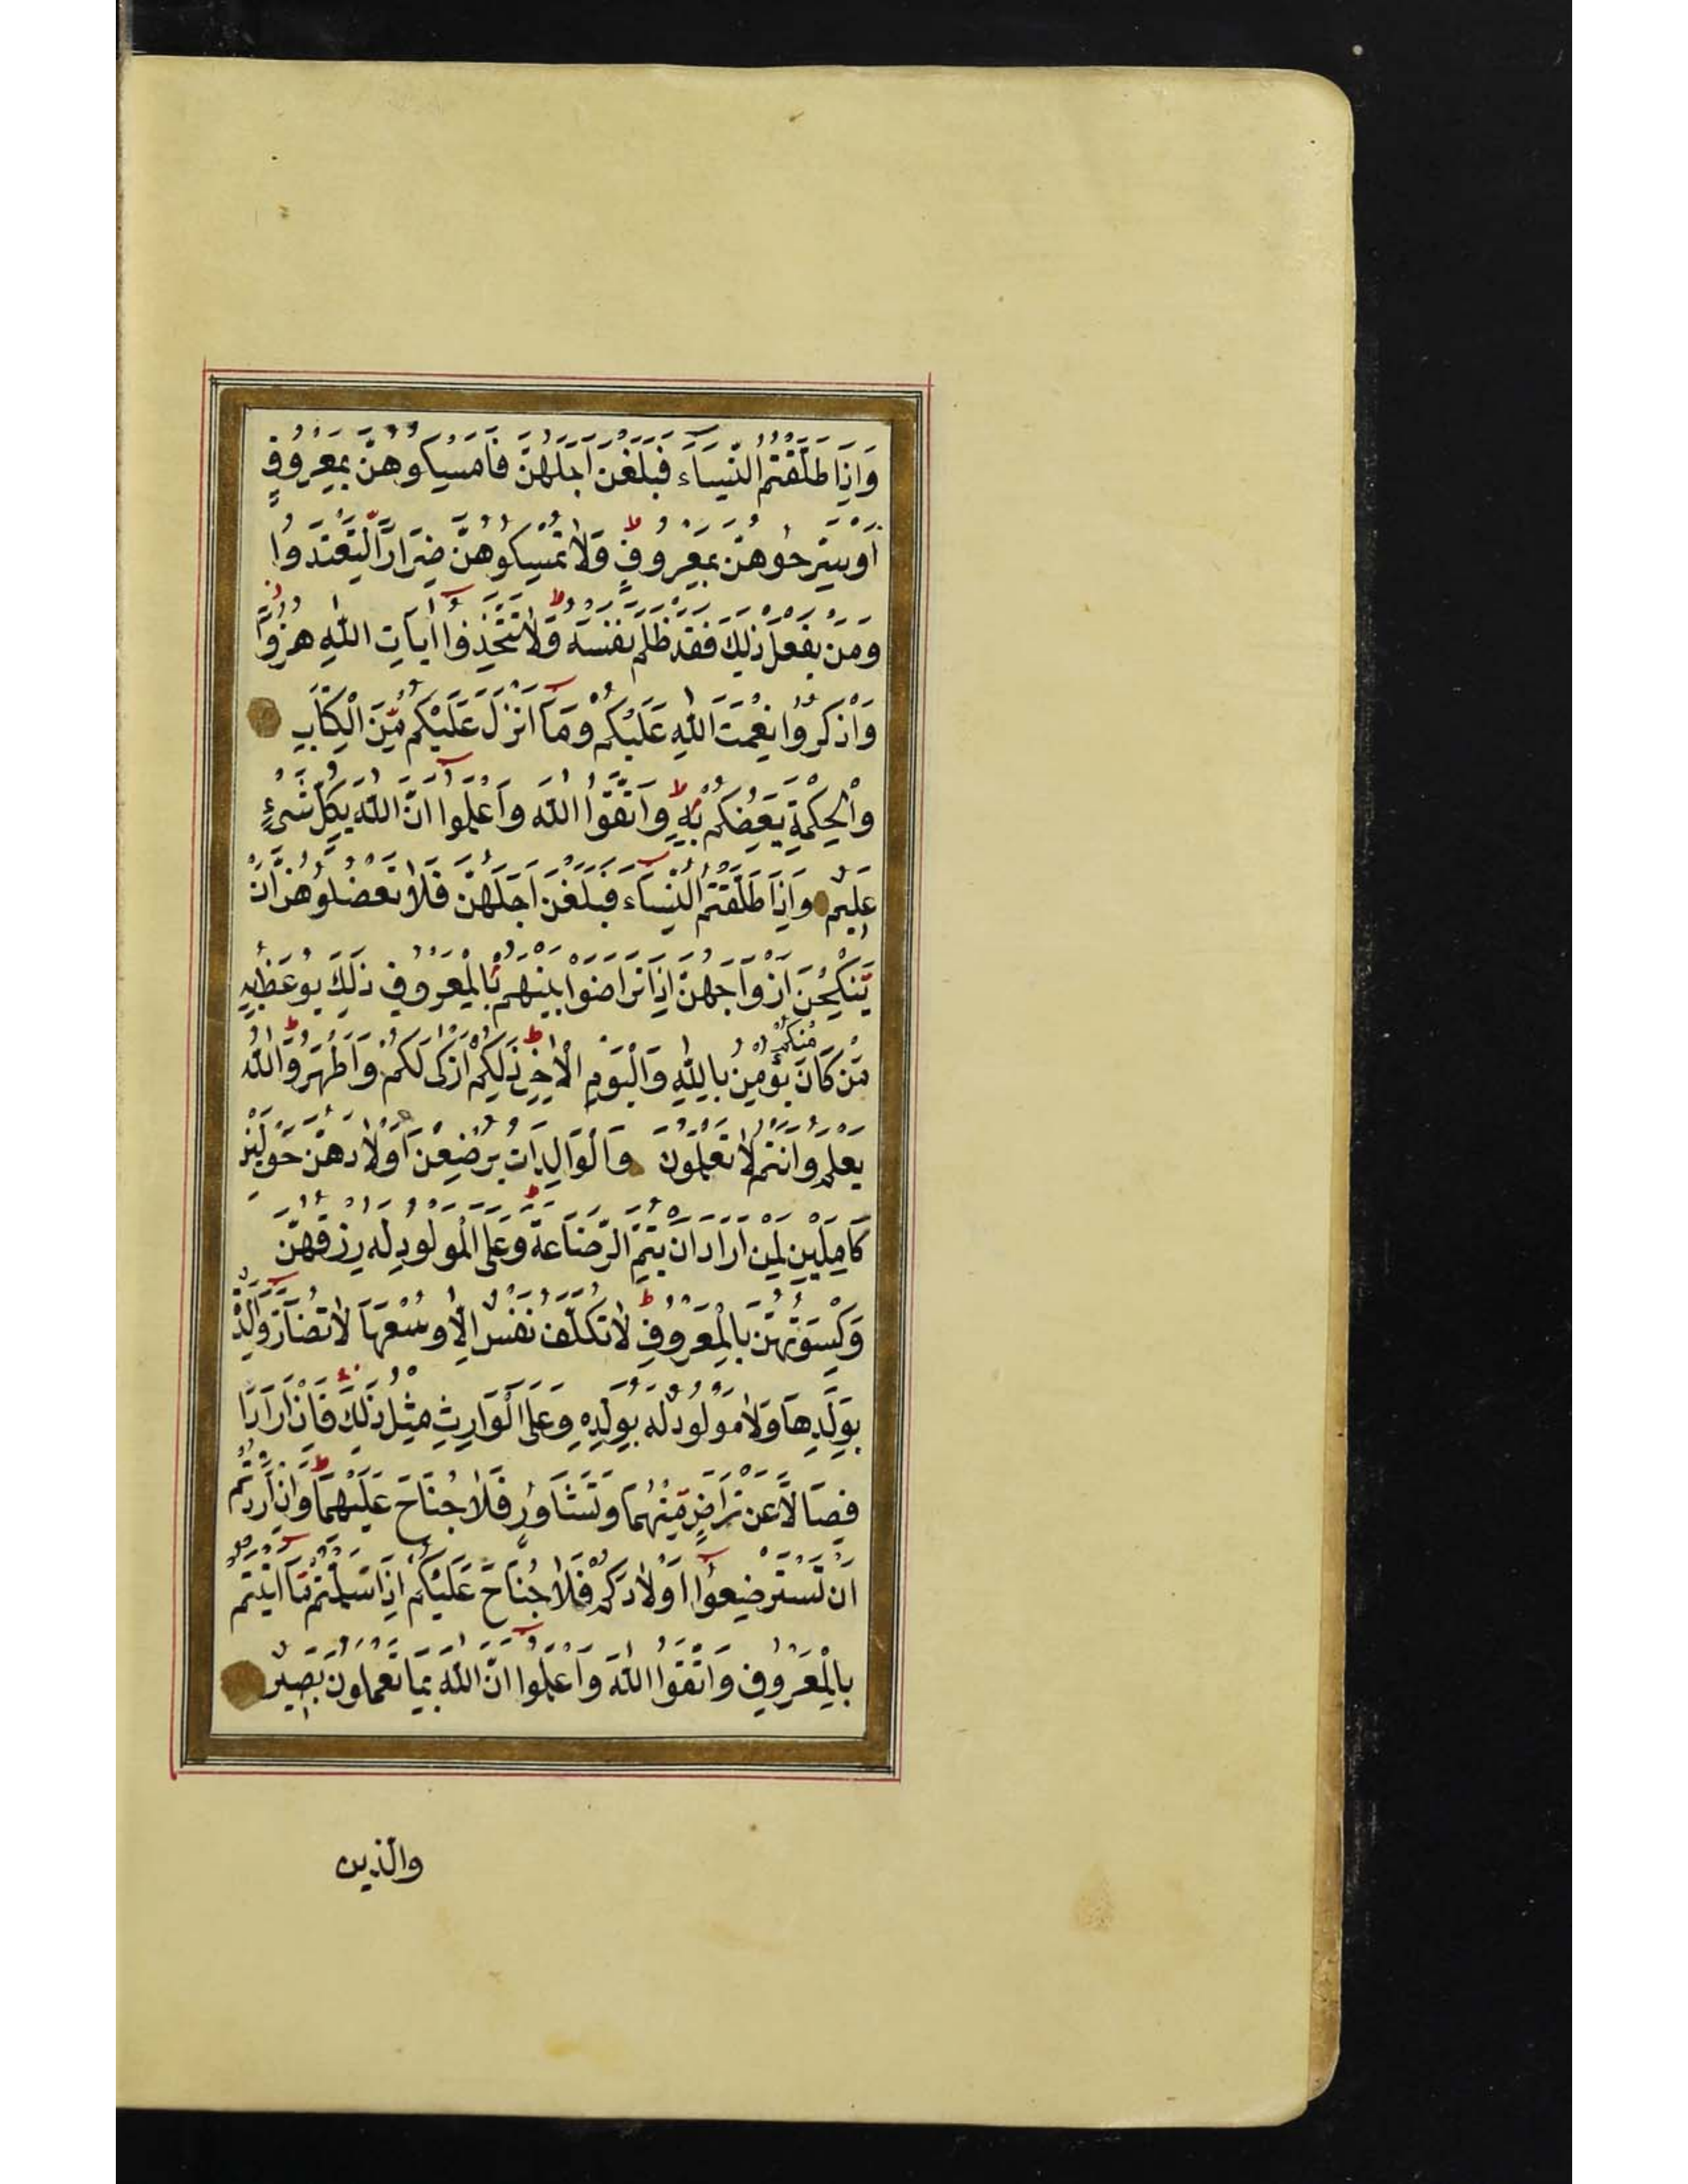 وَاِذَا طَلَّقْتُمُ النِّسَآءَ فَبَلَغْنَ اَجَلَهُنَّ فَاَمْسِكُوهُنَّ بِمَعْرُوفٍ
اَوْ سَرِّحُوهُنَّ بِمَعْرُوفٍ ط وَلَا تُمْسِكُوهُنَّ ضِرَارًا لِتَعْتَدُوا
وَمَنْ يَفْعَلْ ذٰلِكَ فَقَدْ ظَلَمَ نَفْسَهُ ط وَلَا تَتَّخِذُٓوا اٰيَاتِ اللّٰهِ هُزُوًا
وَاذْكُرُوا نِعْمَتَ اللّٰهِ عَلَيْكُمْ وَمَآ اَنْزَلَ عَلَيْكُمْ مِنَ الْكِتَابِ
وَالْحِكْمَةِ يَعِظُكُمْ بِهِ ط وَاتَّقُوا اللّٰهَ وَاعْلَمُٓوا اَنَّ اللّٰهَ بِكُلِّ شَيْءٍ
عَلِيمٌ وَاِذَا طَلَّقْتُمُ النِّسَآءَ فَبَلَغْنَ اَجَلَهُنَّ فَلَا تَعْضُلُوهُنَّ اَنْ
يَنْكِحْنَ اَزْوَاجَهُنَّ اِذَا تَرَاضَوْا بَيْنَهُمْ بِالْمَعْرُوفِ ذٰلِكَ يُوعَظُ بِهِ
مِنْكُمْ
مَنْ كَانَ يُؤْمِنُ بِاللّٰهِ وَالْيَوْمِ الْاٰخِرِ ط ذٰلِكُمْ اَزْكٰى لَكُمْ وَاَطْهَرُ ط وَاللّٰهُ
يَعْلَمُ وَاَنْتُمْ لَا تَعْلَمُونَ وَالْوَالِدَاتُ يُرْضِعْنَ اَوْلَادَهُنَّ حَوْلَيْنِ
كَامِلَيْنِ لِمَنْ اَرَادَ اَنْ يُتِمَّ الرَّضَاعَةَ ط وَعَلَى الْمَوْلُودِ لَهُ رِزْقُهُنَّ
وَكِسْوَتُهُنَّ بِالْمَعْرُوفِ ط لَا تُكَلَّفُ نَفْسٌ اِلَّا وُسْعَهَا لَا تُضَآرَّ وَالِدَةٌ
بِوَلَدِهَا وَلَا مَوْلُودٌ لَهُ بِوَلَدِهِ وَعَلَى الْوَارِثِ مِثْلُ ذٰلِكَ فَاِنْ اَرَادَا
فِصَالًا عَنْ تَرَاضٍ مِنْهُمَا وَتَشَاوُرٍ فَلَا جُنَاحَ عَلَيْهِمَا ط وَاِنْ اَرَدْتُمْ
اَنْ تَسْتَرْضِعُٓوا اَوْلَادَكُمْ فَلَا جُنَاحَ عَلَيْكُمْ اِذَا سَلَّمْتُمْ مَآ اٰتَيْتُمْ
بِالْمَعْرُوفِ وَاتَّقُوا اللّٰهَ وَاعْلَمُٓوا اَنَّ اللّٰهَ بِمَا تَعْمَلُونَ بَصِيرٌ
والذين